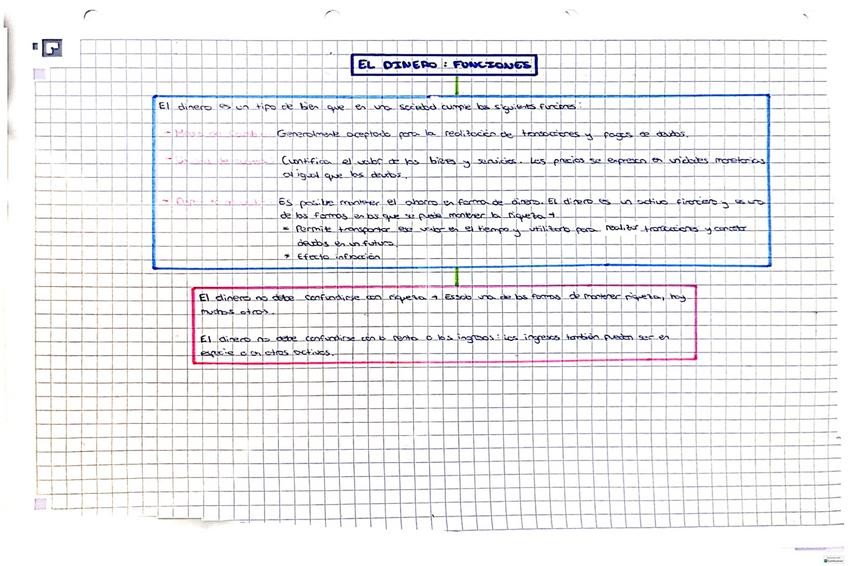 EL DINERO : FUNCIONES
El dinero es un tipo de bien que en una sociedad cumple las siguientes funciones:
- Generalmente aceptado para la realización de transacciones y pagos de deudas.
- Cuantifica el valor de los bienes y servicios. Los precios se expresan en unidades monetarias
al igual que las deudas.
- Es posible mantener el ahorro en forma de dinero. El dinero es un activo financiero y es una
de las formas en las que se puede mantener la riqueza →
Permite transportar ese valor en el tiempo y utilizarlo para realizar transacciones y cancelar
deudas en un futuro.
* Efecto inflación
El dinero no debe confundirse con riqueza → una de las formas de mantener riqueza, hay
muchas otras.
El dinero no debe confundirse con la renta o los ingresos: los ingresos también pueden ser en
especie o en otros activos.